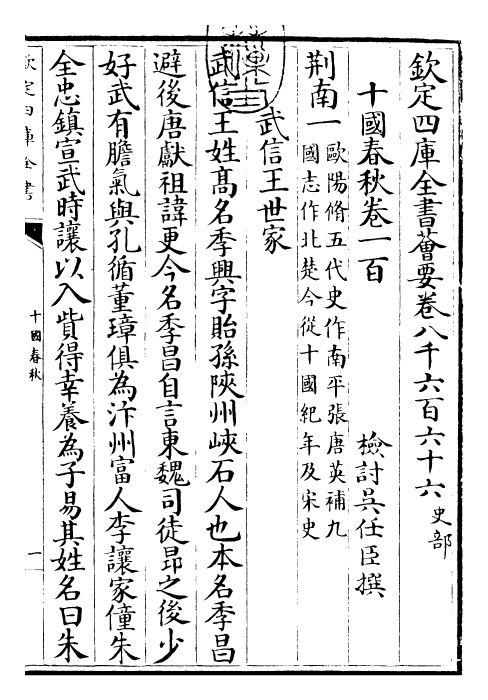 欽定四庫全書薈要卷八千六百六十六史部
十國春秋卷一百
檢討吳任臣撰
荆南一歐陽脩五代史作南平張唐英補九
國志作北楚今從十國紀年及宋史
武信王世家
武信王姓髙名季興字貽孫陜州峽石人也本名季昌
避後唐獻祖諱更今名季昌自言東魏司徒昂之後少
好武有膽氣與孔循董璋俱為汴州富人李讓家僮朱
全忠鎮宣武時讓以入貲得幸養為子易其姓名曰朱
欽定四庫全書
十國春秋
一